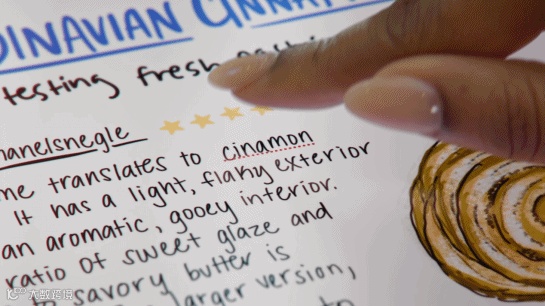 DINAVIAN CINNAM
testing fresh past
hanelsnegle
me translates to cinamon
It has a light, flaky exterior
an aromatic, gooey interior.
ratio of sweet glaze and
savory butter is
larger version,
to
大数跨境